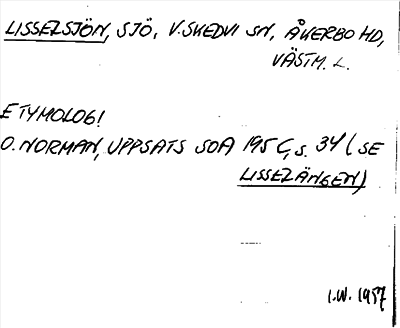 LISSELSJÖN, SJÖ, V. SKEDVI SN, ÅKERBO HD,
VÄSTM. L.
ETYMOLOGI
O. NORMAN, UPPSATS SOA 195 C, s. 34 (SE
LISSELÄNGEN)
I.W. 1957